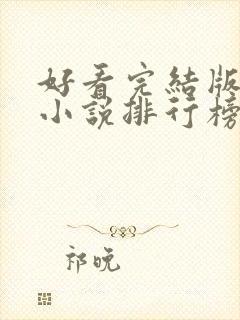 好看完結版
小說排行榜
祁晚